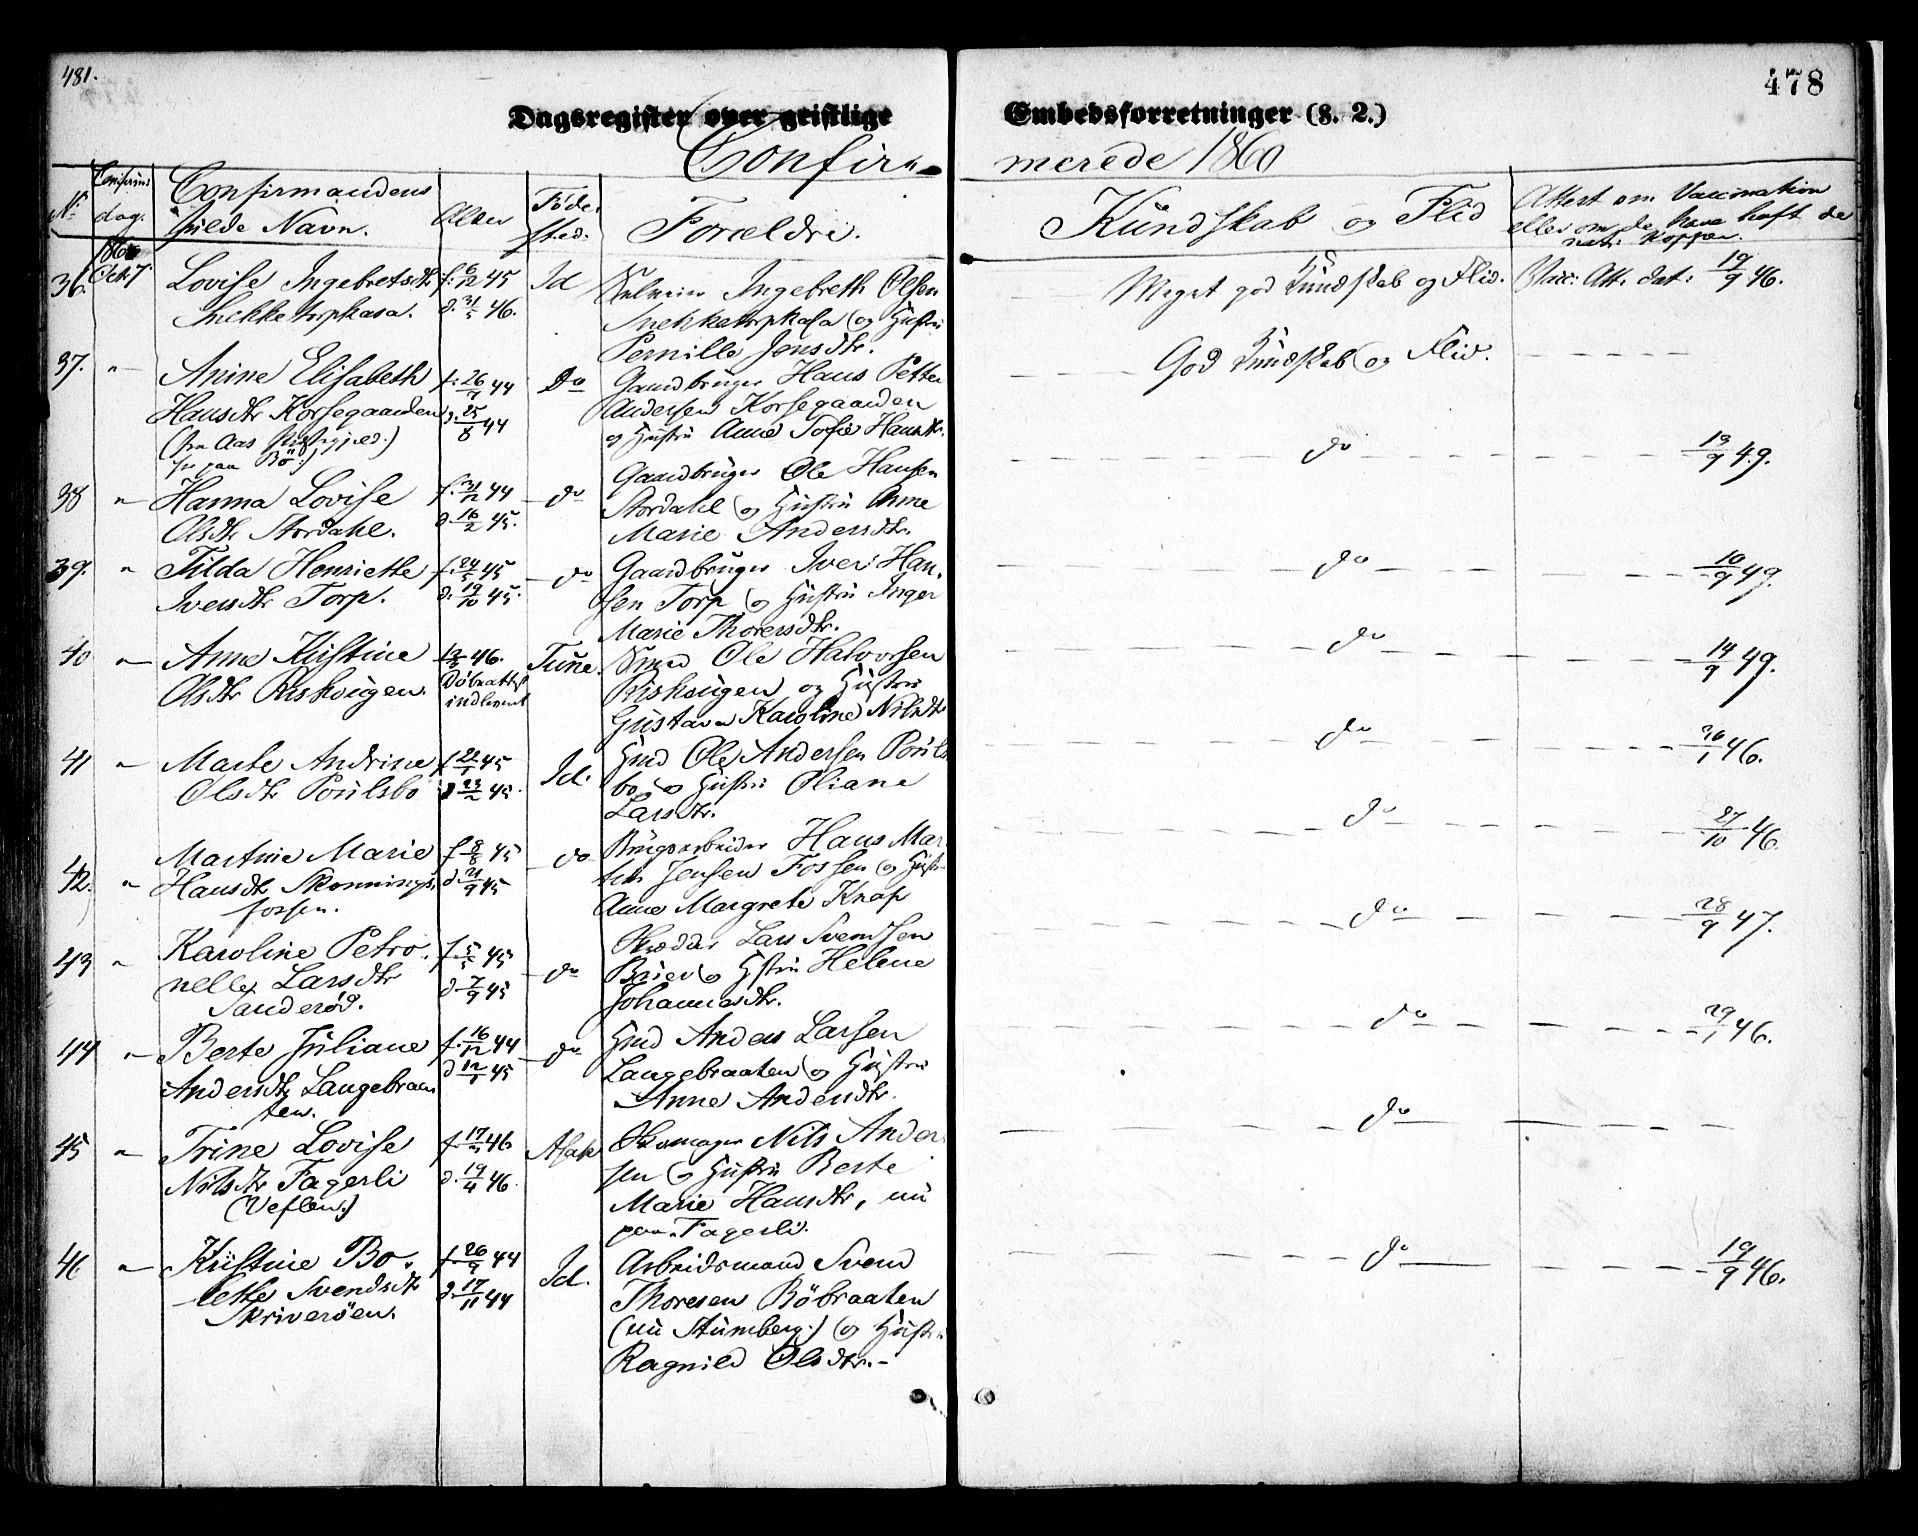 481.
478
Dagsregister over geistlige Embedsforretninger (§. 2.)
Confirmerede 1860
No
dag.
Confirmandens
fulde Navn.
Alder
Føde-
sted.
Forældre.
Kundskab og Flid
Attest om Vaccination
eller om de have haft de
nat: Kopper.
1860
36. Oct. 7.
Lovise Ingebretsdtr
Snekketorpkasa.
f. 6/12 45
d. 31/5 46.
Id
Ingebreth Olsen
Snekketorpkasa og Hustru
Pernille Jensdtr.
Meget god Kundskab og Flid.
Vacc: Att. dat: 19/9 46.
37. "
Anine Elisabeth
Hansdtr Korsegaarden
(fra Aas Præstegjeld.)
paa Bö.
f. 26/7 44
d. 25/8 44
Do
Gaardbruger Hans Petter
Andersen Korsegaarden
og Hustru Anne Sofie Hansdtr.
God Kundskab og Flid.
38 "
Hanna Lovise
Olsdtr Stordahl.
f. 31/12 44
d. 16/2 45.
do
Gaardbruger Ole Hansen
Stordahl og Hustru Anne
Marie Andersdtr.
do
13/9 49.
39. "
Tilda Henriette
Iversdtr Torp.
f. 24/5 45
d. 19/10 45.
do
Gaardbruger Iver Han-
sen Torp og Hustru Inger
Marie Thoresdtr.
do
10/9 49.
40 "
Anne Kristine
Olsdtr Riskougen.
46.
Döbeattest
indleveret
Tune.
Smed Ole Halvorsen
Riskougen og Hustru
Gustava Karoline Nilsdtr
do
14/9 49.
41 "
Marte Andrine
Olsdtr Poulsbo
f. 22/1 45
d. 23/2 45.
Id.
Hmd Ole Andersen Pouls
bo og Hustru Oliane
Larsdtr.
do
26/1 46.
42. "
Martine Marie
Hansdtr Skonnings-
fossen.
f. 8/8 45
d. 21/9 45
do
Brugsarbeider Hans Mar
tin Jensen Fossen og Hustru
Anne Margrete Knap
do
27/10 46.
43 "
Karoline Petro-
nelle Larsdtr
Sanderöd.
f. 5/5 45
d. 7/9 45
do
Skrædder Lars Svendsen
Buer og Hstru Helene
Johannesdtr.
do
28/9 47.
44 "
Berte Juliane
Andersdtr Langebraa
ten.
f. 16/12 44
d. 12/1 45
do
Hmd Anders Larsen
Langebraaten og Hustru
Anne Andersdtr.
do
29/1 46.
45 "
Trine Lovise
Nilsdtr Fagerli
(Veflen.)
f. 17/3 46
d. 19/4 46.
Asak
Skomager Nils Ander
sen og Hustru Berte
Marie Hansdtr, nu
paa Fagerli.
do
46. "
Kristine Bo-
lette Svendsdtr
Skriverøen.
f. 26/9 44
d. 17/11 44
Id.
Arbeidsmand Svend
Thoresen Böbraaten
(nu Stumberg.) og Hustru
Ragnild Olsdtr.
do
19/9 46.